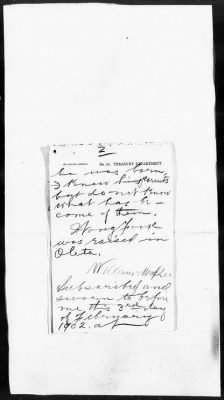 2
No. 15. TREASURY DEPARTMENT
he was born
I knew his parents
but do not know
what has be-
come of them.
Hong
was raised in
Oleta.
William
Subscribed and
sworn to before
me this 3rd day
of February
1902.